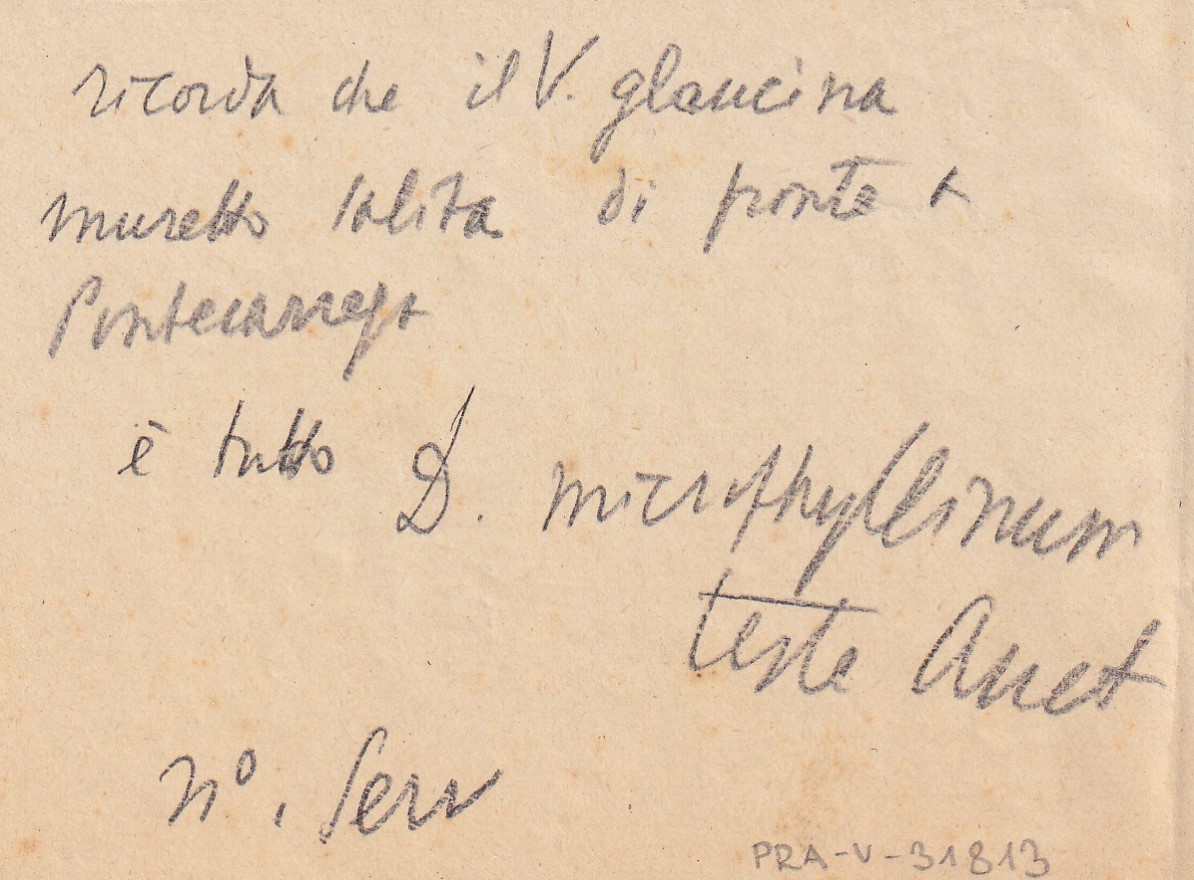 ricorda che il V. glaucina
muretto salita di fronte a
Pontecarrega
è tutto D. microphyllinum
teste
n°.
PRA-V-31813